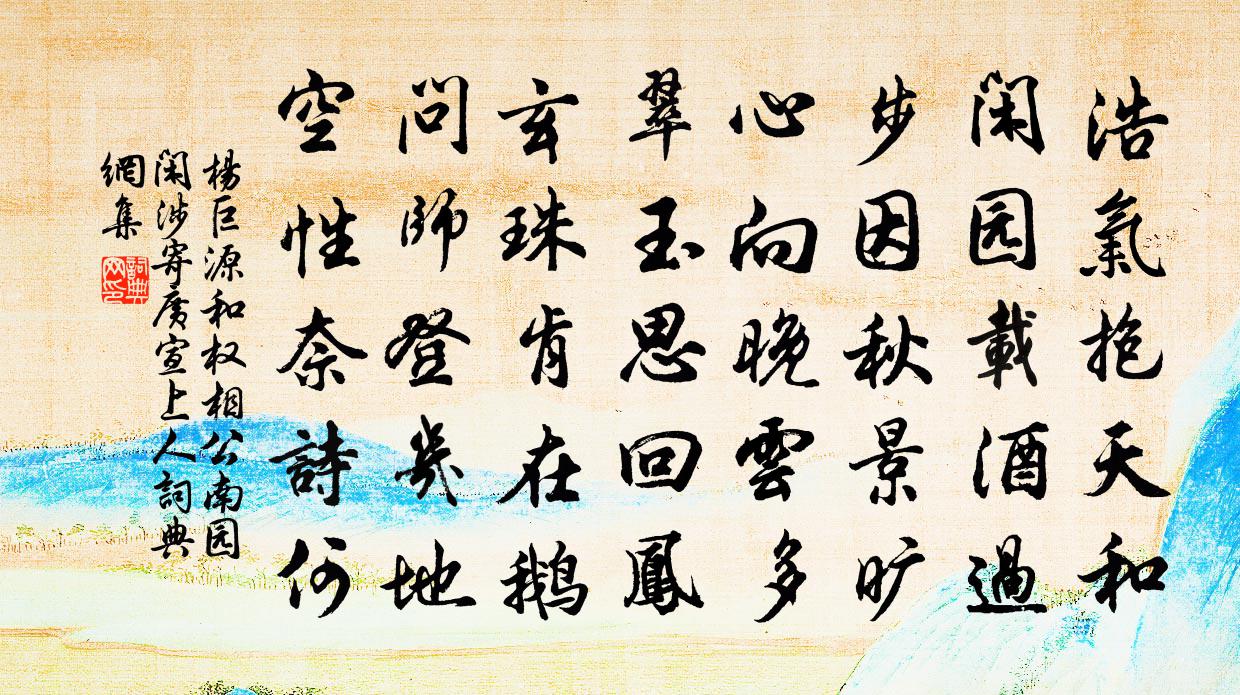 浩氣抱天和
閑园載酒過
步因秋景旷
心向晚雲多
翠玉思回鳳
玄珠肯在鹅
問師登幾地
空性奈詩何
楊巨源和权相公南园
閑涉寄廣宣上人詞典
網集
詞典
网印